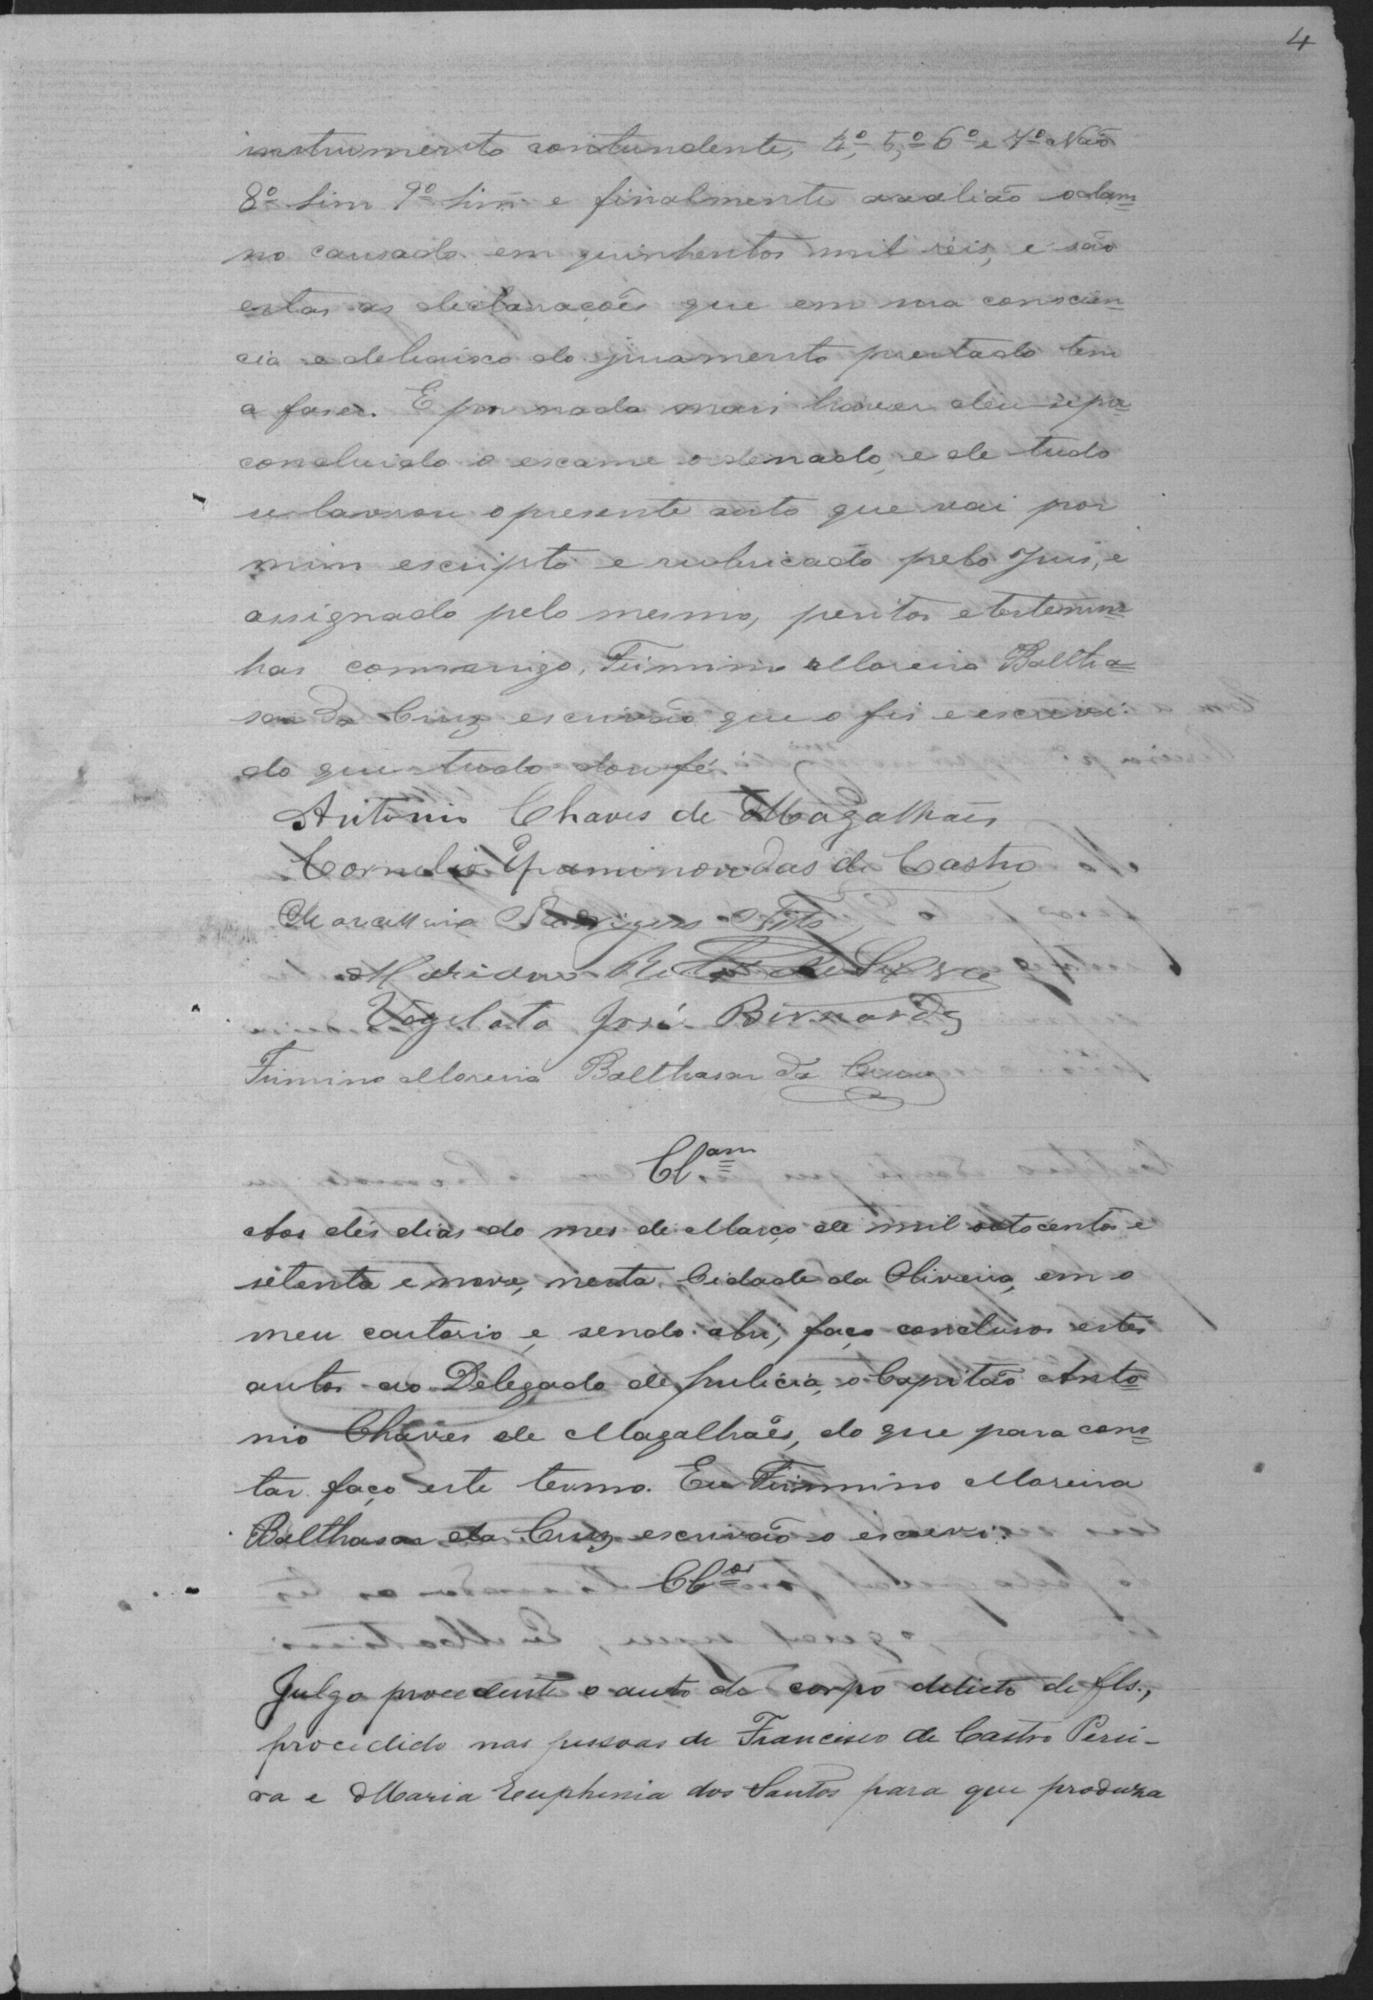 4
instrumento contundente, 4º, 5º, 6º e 7º Não
8º Sim 9º Sim e finalmente avalião o dam=
no causado em quinhentos mil réis, e são
estas as declarações que em sua conscien=
cia e debaixo do juramento prestado tem
a faser. E por nada mais haver deu-se por
concluido o exame ordenado, e de tudo
se lavrou o presente auto que vai por
mim escripto e rubricado pelo Juis, e
assignado pelo mesmo, peritos e testemu=
has commigo, Firmino Moreira Baltha=
sar da Cruz escrivão que o fis e escrevi.
do que tudo dou fé.
Antonio Chaves de Magalhães
Cornelio Epaminondas de Castro
Marcellino Rodrigues
Mariano
José Bernardes
Firmino Moreira Balthasar da Cruz
Cl.am
Aos dés dias do mes de Março de mil oitocentos e
setenta e nove, nesta Cidade da Oliveira, em o
meu cartorio e, sendo ahi, faço conclusos estes
autos ao Delegado de pulicia, o Capitão Anto=
nio Chaves de Magalhães, do que para cons=
tar faço este termo. Eu Firmino Moreira
Balthasar da Cruz escrivão o escrevi.
Cl.os
Julgo procedente o auto de corpo delicto de fls.,
procedido nas pessoas de Francisco de Castro Perei-
ra e Maria Euphenia dos Santos para que produza